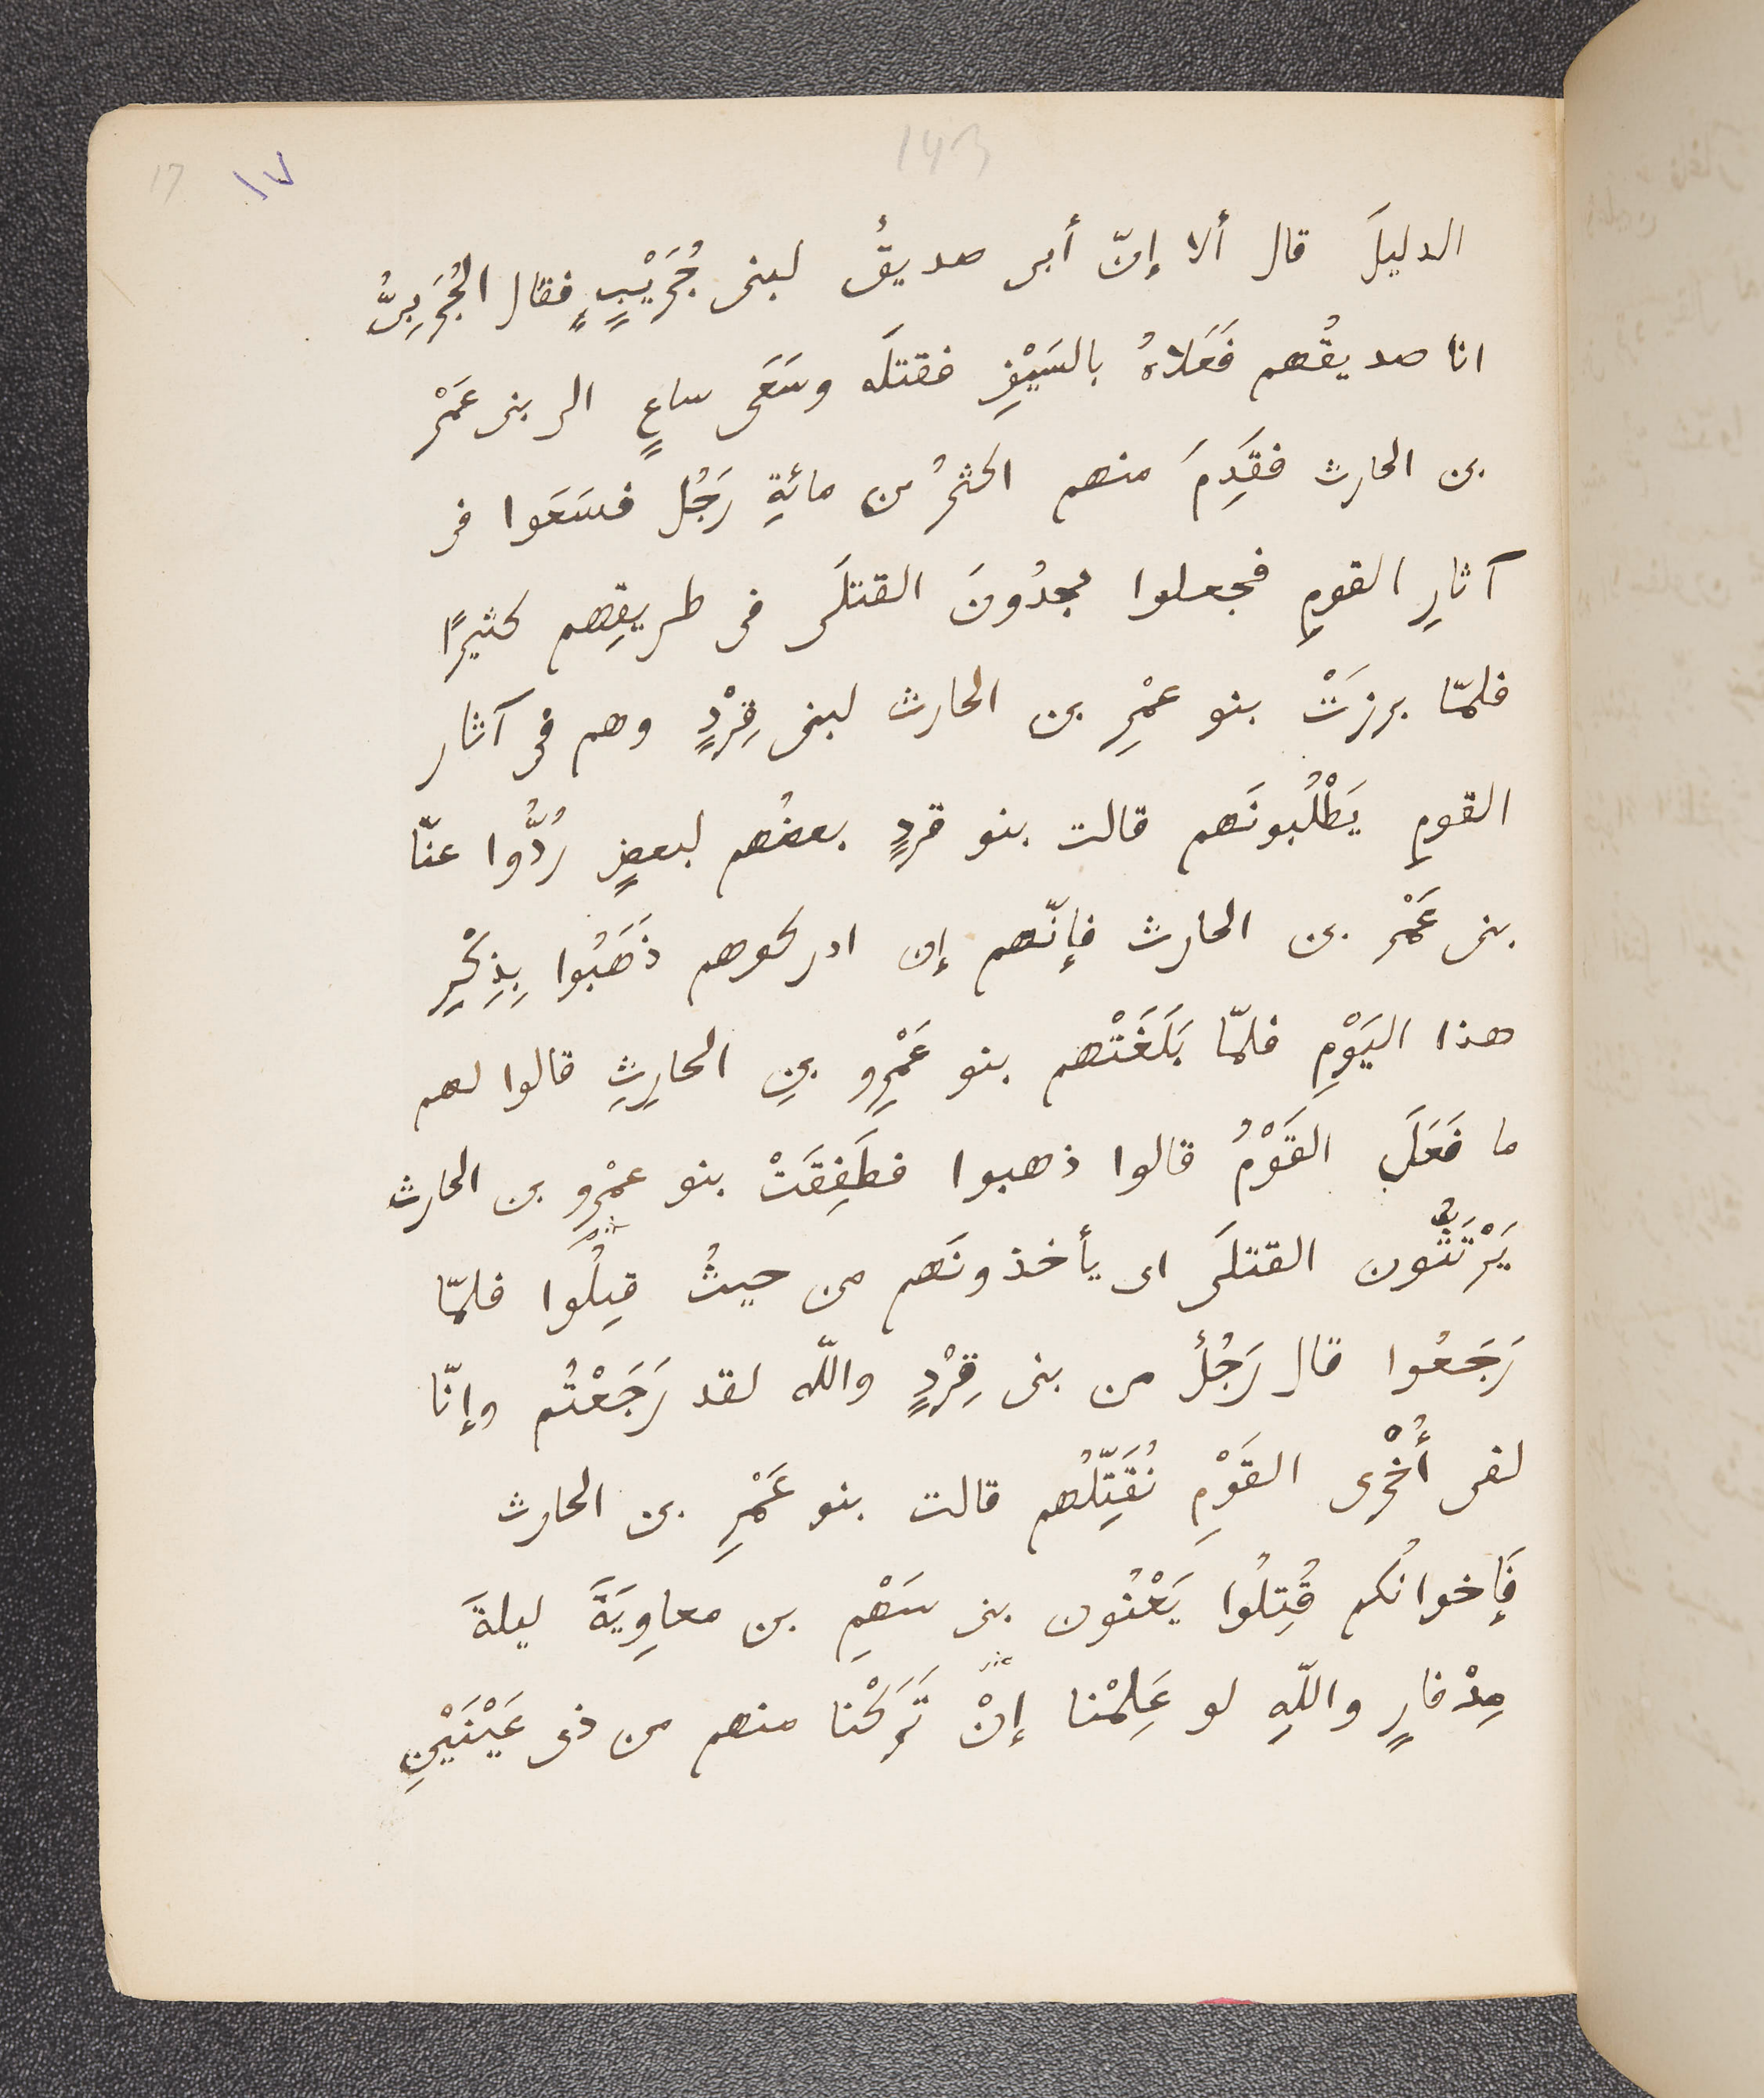 143
17 ١٧
الدليلَ قال ألا إنّ أبى صديقٌ لبنى جُرَيْبٍ فقال الجُرَيبىُّ
انا صديقُهم فَعَلاهُ بالسَيْفِ فقتلَه وسَعَى ساعٍ الى بنى عَمْرِ
بن الحارث فقَدِمَ منهم اكثرُ من مائةِ رَجُل فسَعَوا فى
آثارِ القومِ فجعلوا يجدُونَ القتلَى فى طريقِهم كثيرًا
فلمّا برزَتْ بنو عمْرِ بن الحارث لبنى قِرْدٍ وهم فى آثار
القومِ يَطْلُبونَهم قالت بنو قردٍ بعضُهم لبعضٍ رُدُّوا عنّا
بنى عَمْرِ بن الحارث فإنّهم إن ادركوهم ذَهَبُوا بِذِكْرِ
هذا اليَوْمِ فلمّا بَلَغَتْهم بنو عَمْرِو بنِ الحارِثِ قالوا لهم
ما فَعَلَ القَوْمُ قالوا ذهبوا فطَفِقَتْ بنو عمْرِو بن الحارث
يَرْتَثُّون القتلَى اى يأخذونَهم من حيثُ قتِلُوا فلمّا
رَجَعُوا قال رَجُلٌ من بنى قِرْدٍ واللّه لقد رَجَعْتُم وإنّا
لفى أُخْرى القَوْمِ نُقَتِّلُهم قالت بنو عَمْرِ بن الحارث
فَإخوانُكم قُتِلُوا يَعْنُون بنى سَهْمِ بن معاوِيَةَ ليلةَ
مِدْفارٍ واللّهِ لو عَلِمْنا إنْ تَرَكْنا منهم من ذى عَيْنَيْنِ